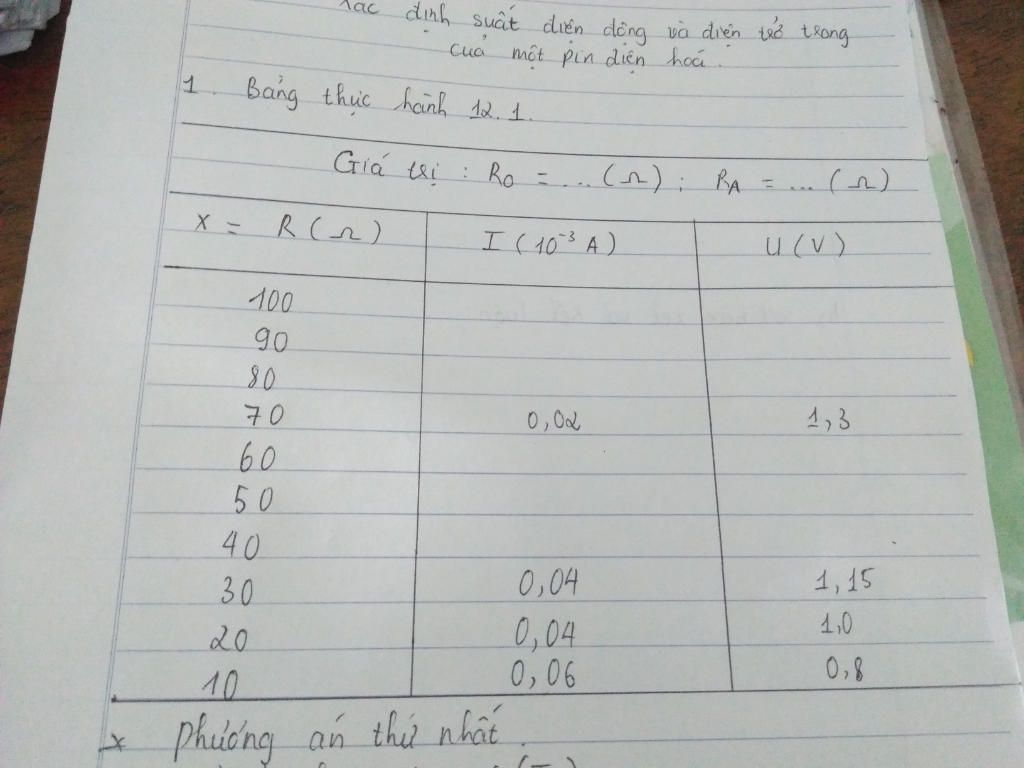 định suất điện động và điện trở trong
của một pin điện hoá.
1. Bảng thực hành 12.1.
Giá trị : R0 = ... (Ω) ; RA = ... (Ω)
x = R (Ω) I (10⁻³ A) U (V)
100
90
80
70 0,02 1,3
60
50
40
30 0,04 1,15
20 0,04 1,0
10 0,06 0,8
x Phương án thứ nhất.